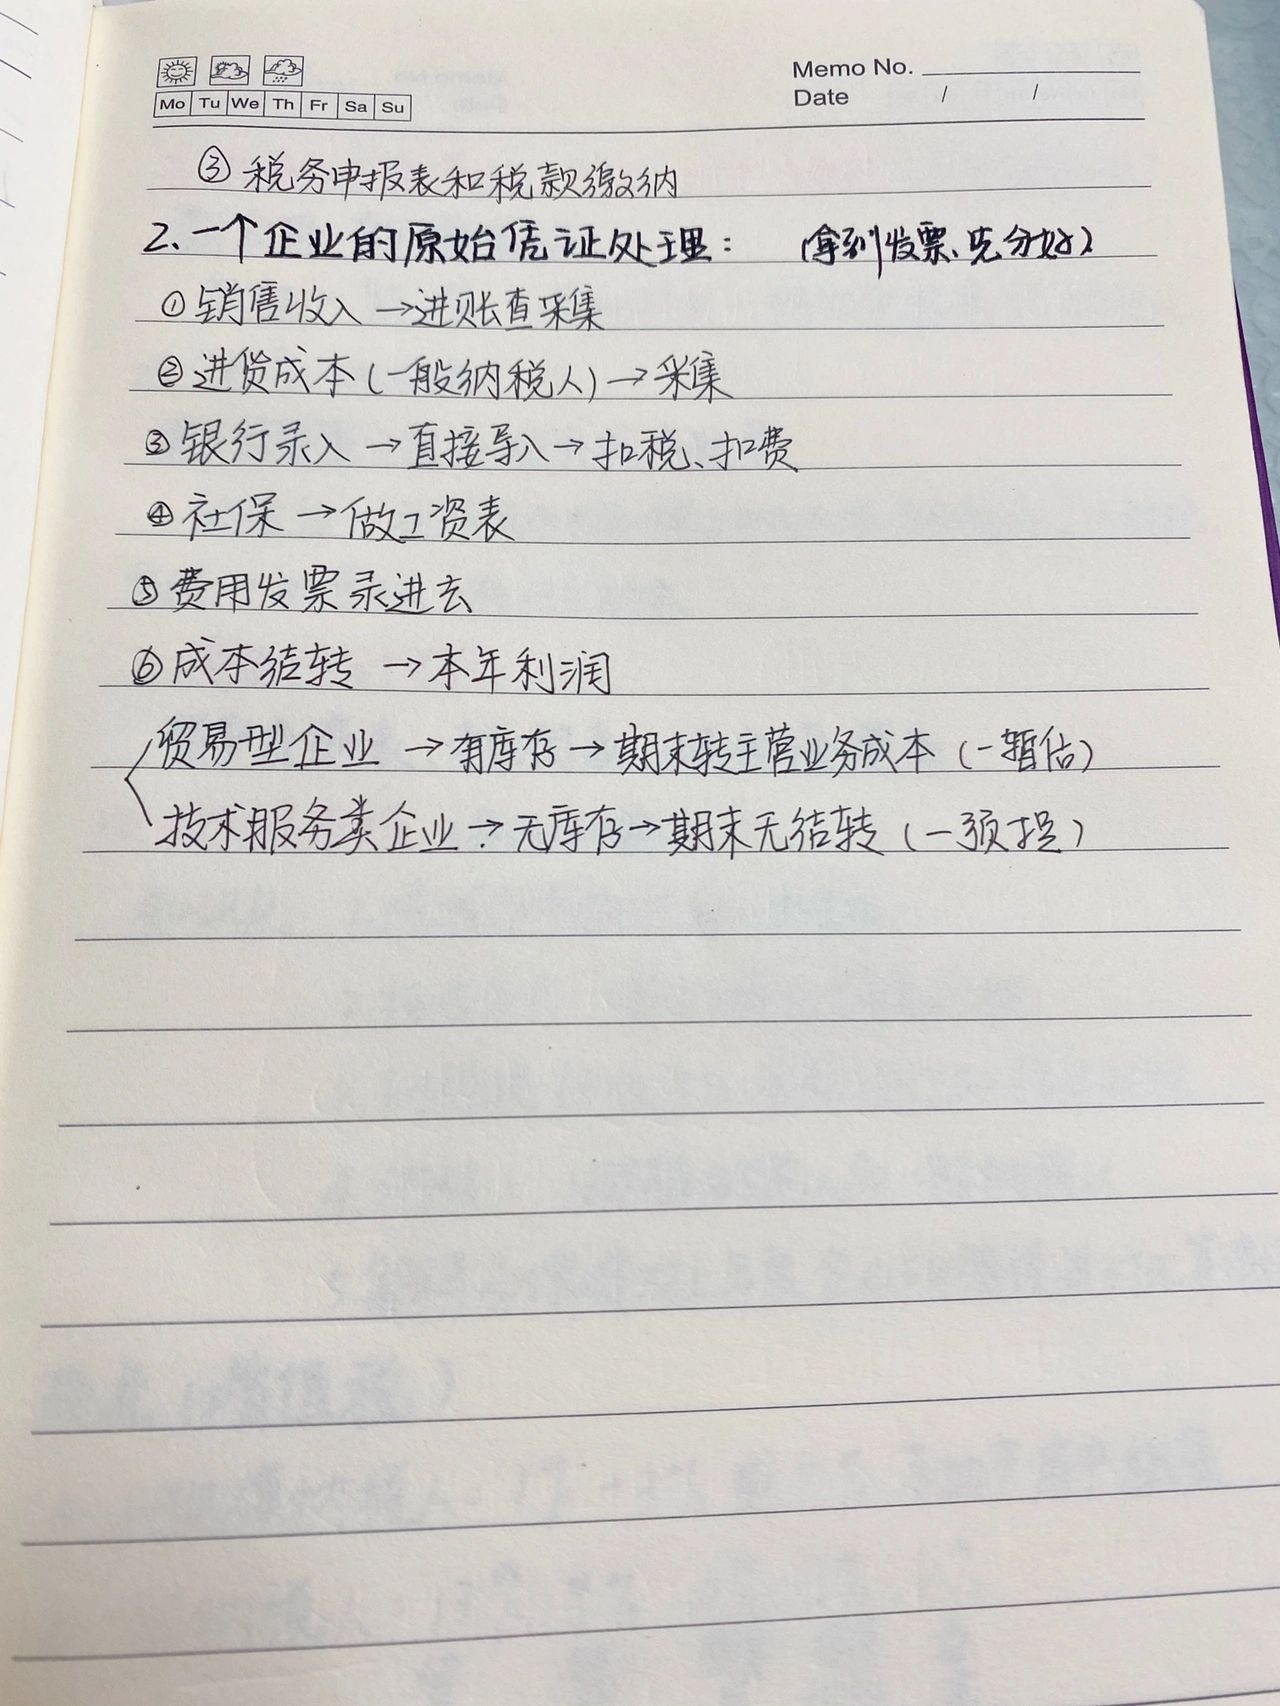 Memo No.
Mo Tu We Th Fr Sa Su
Date / /
③ 税务申报表和税款缴纳
2、一个企业的原始凭证处理： (拿到发票、先分好)
① 销售收入 →进账查采集
② 进货成本(一般纳税人)→采集
③ 银行录入 →直接导入→扣税、扣费
④ 社保 →做工资表
⑤ 费用发票录进去
⑥ 成本结转 →本年利润
贸易型企业 →有库存→期末转主营业务成本 (一暂估)
技术服务类企业→无库存→期末无结转 (一预提)